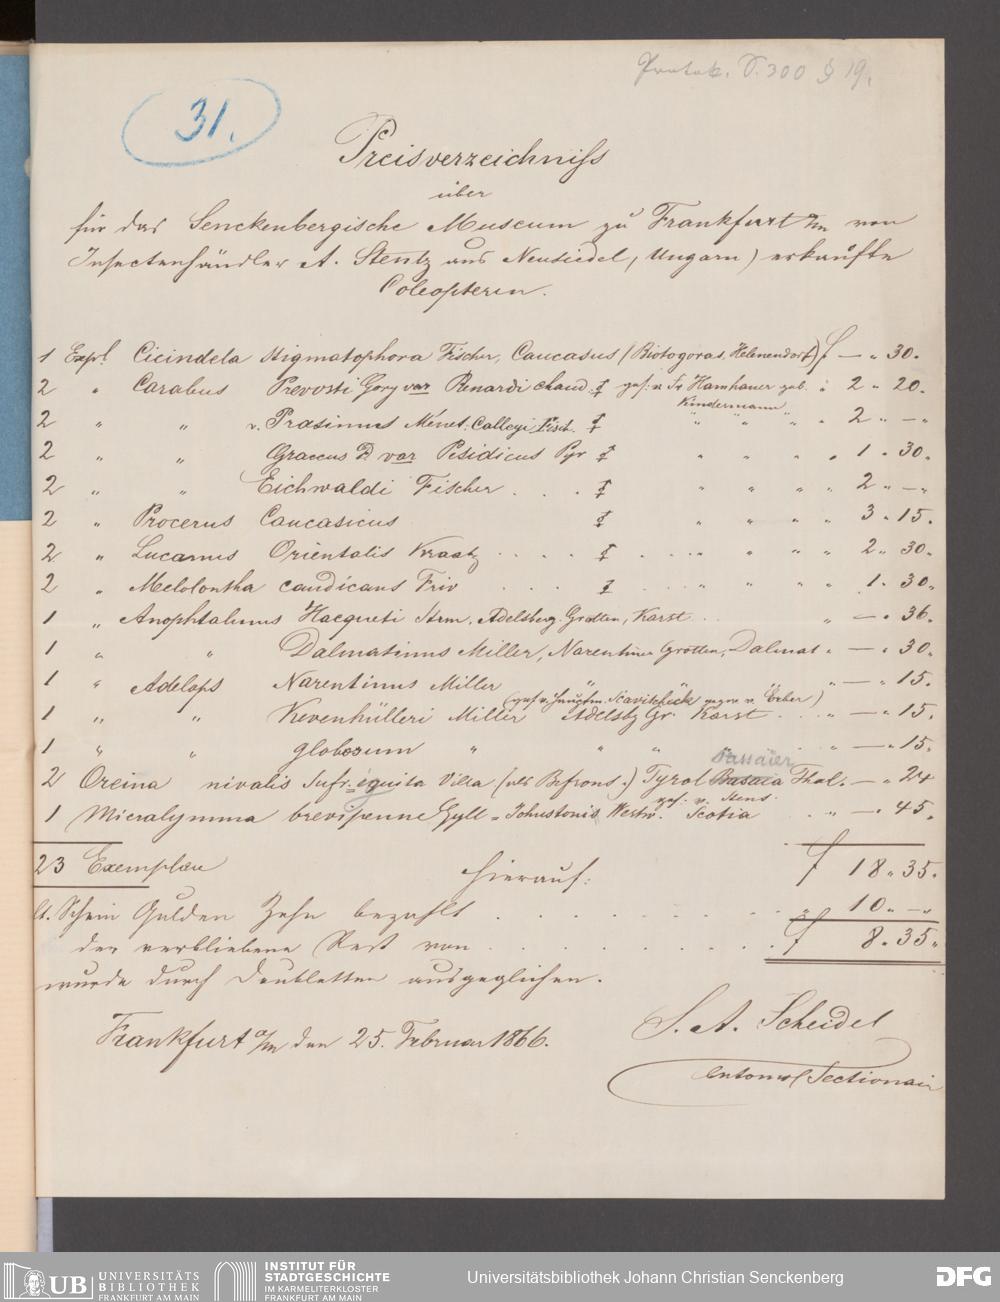 Protok. S. 300 § 19.
31.
Preisverzeichniss
über
für das Senckenbergische Museum zu Frankfurt a/m von
Insectenhändler A. Stentz aus Neusiedel, Ungarn) erkaufte
Coleopteren.
1 Expl. Cicindela stigmatophora Fischer, Caucasus (Helenendorf) f — „ 30.
2 „ Carabus Prevosti Gory var Renardi chaud. ges: v. Fr Hamhauer geb. „ 2 „ 20.
Kindermann
2 „ „ v. Prasinus Menet: Calleyi Fisch. „ „ „ „ 2 „ — „
2 „ „ Graecus D. var Pisidicus Pyr „ „ „ „ 1 „ 30.
2 „ „ Eichwaldi Fischer . . . „ „ „ „ 2 „ — „
2 „ Procerus Caucasicus „ „ „ „ 3 „ 15.
2 „ Lucanus Orientalis Kraatz . . . . „ „ „ „ 2 „ 30.
2 „ Melolontha candicans Friv . . . „ „ „ „ 1 „ 30.
1 „ Anophtalmus Hacqueti Strm. Adelsberg. Grotten, Karst . . „ — „ 36.
1 „ „ Dalmatinus Miller, Narentiner Grotten, Dalmat „ — „ 30.
1 „ Adelops Narentinus Miller „ „ „ — „ 15.
1 „ „ Kevenhülleri Miller Adelsbg Gr. Karst . . „ — „ 15.
1 „ „ globosum „ „ „ „ „ — „ 15.
Passaier
2 Oreina nivalis Sufr. Villa Tyrol Thal. — „ 24
1 Micralymma brevipenne Gyll = Johnstonis Westw. Scotia . . „ — „ 45.
23 Exemplare f 18 „ 35.
hierauf:
lt. Schein Gulden Zehn bezahlt . . . . . „ 10 „ — „
den verbliebene Rest von . . . . . f 8 „ 35.
wurde durch Doubletten ausgeglichen.
Frankfurt a/m den 25. Februar 1866.
S. A. Scheidel
entomol Sectionair
UB UNIVERSITÄTS
BIBLIOTHEK
FRANKFURT AM MAIN
INSTITUT FÜR
STADTGESCHICHTE
IM KARMELITERKLOSTER
FRANKFURT AM MAIN
Universitätsbibliothek Johann Christian Senckenberg
DFG